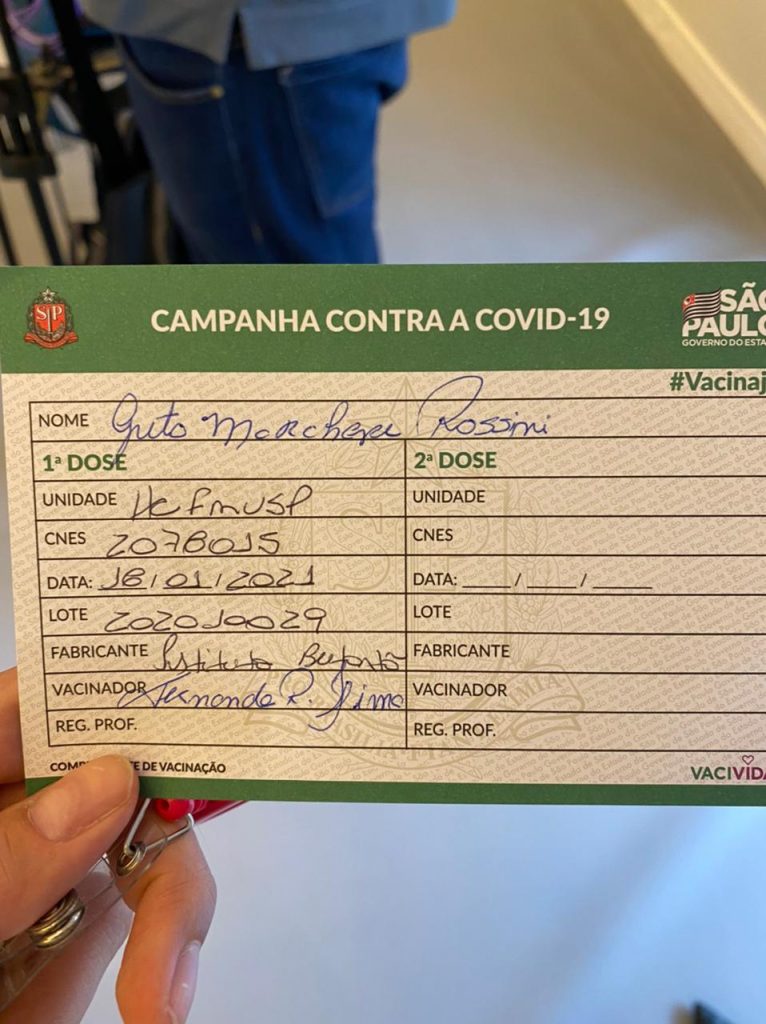 CAMPANHA CONTRA A COVID-19
SÃO
PAULO
GOVERNO DO ESTA
#Vacinaj
NOME Guto Rossini
1ª DOSE 2ª DOSE
UNIDADE HCFMUSP UNIDADE
CNES 2078015 CNES
DATA: 18/01/2021 DATA: ____/____/____
LOTE 202010029 LOTE
FABRICANTE Instituto FABRICANTE
VACINADOR Fernanda R. Lima VACINADOR
REG. PROF. REG. PROF.
DE VACINAÇÃO
VACIVIDA